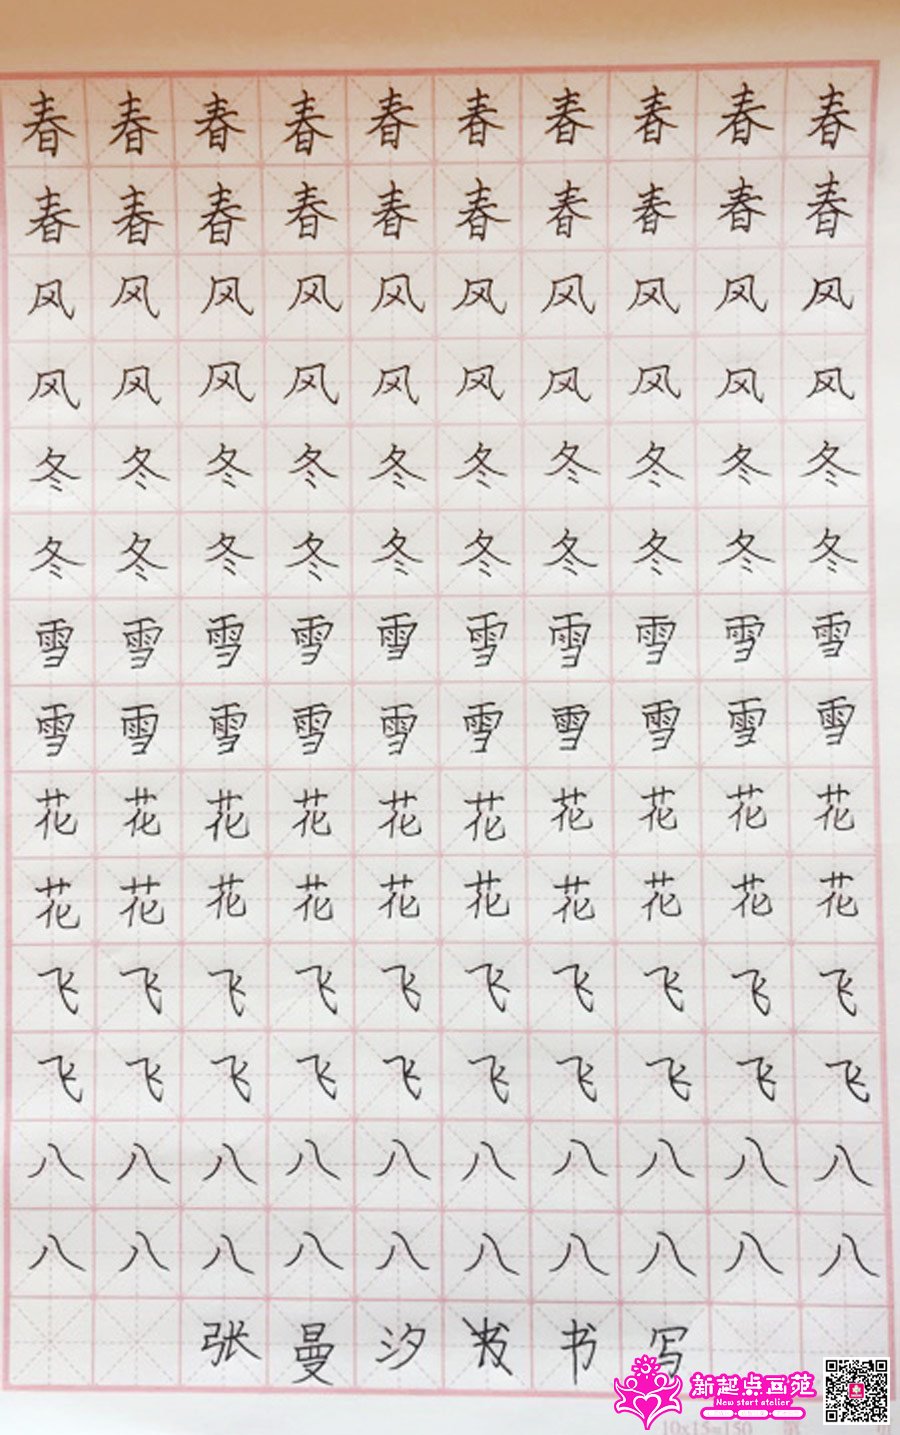 春春春春春春春春春春
春春春春春春春春春春
风风风风风风风风风风
风风风风风风风风风风
冬冬冬冬冬冬冬冬冬冬
冬冬冬冬冬冬冬冬冬冬
雪雪雪雪雪雪雪雪雪雪
雪雪雪雪雪雪雪雪雪雪
花花花花花花花花花花
花花花花花花花花花花
飞飞飞飞飞飞飞飞飞飞
飞飞飞飞飞飞飞飞飞飞
八八八八八八八八八八
八八八八八八八八八八
张曼汐书书写
新起点画苑
New start atelier
10x15=150